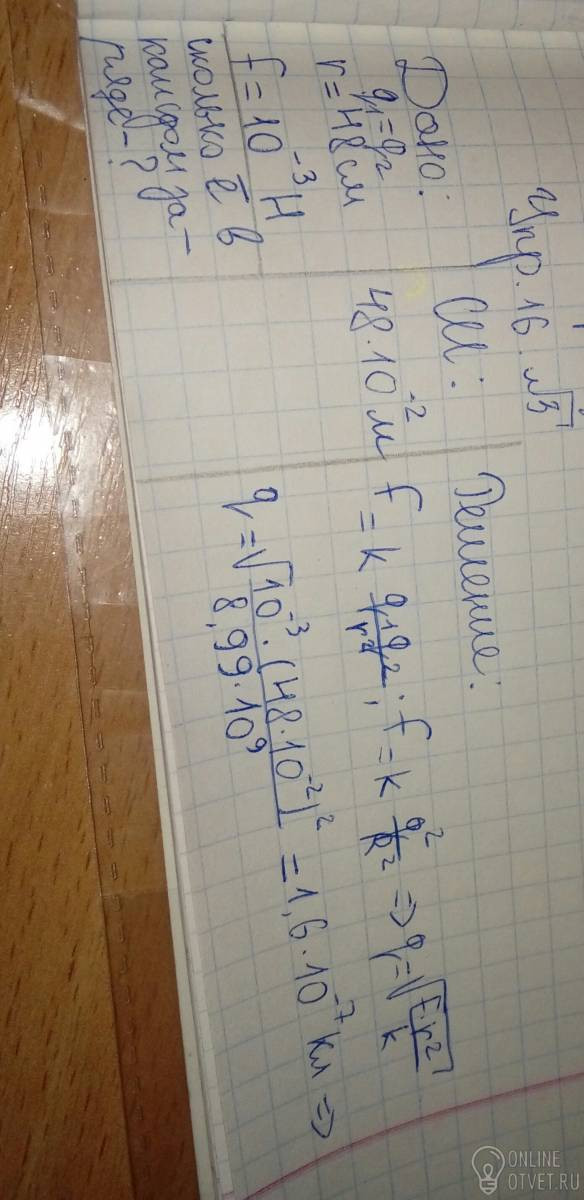 Упр. 16. №3
Дано:
q₁=q₂
r=48см
f=10⁻³Н
сколько ē в
каждом за-
ряде-?
СИ:
48·10⁻²м
Решение:
f=k q₁q₂/r²; f=k q²/R² => q=√F·r²/k
q=√10⁻³·(48·10⁻²)²/8,99·10⁹ =1,6·10⁻⁷кл =>
ONLINE
OTVET.RU